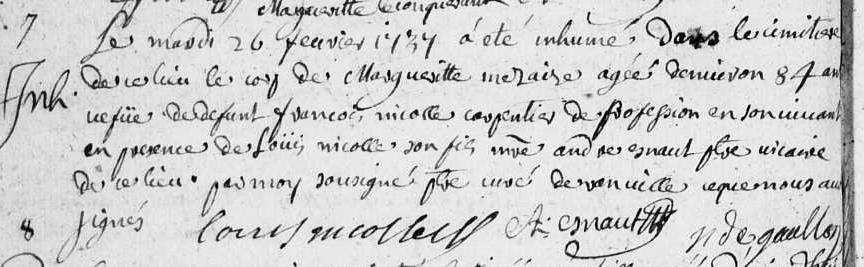 Margueritte
7 Le mardi 26 fevrier 1737 a été inhumé dans le cimitiere
Inh. de ce lieu le corp de Margueritte mezaize agéé denviron 84 an
vefüe de defunt francois nicolle carpentier de profession en son vivant
en presence de Loüis nicolle son fils mre andre esnaut ptre vicaire
de ce lieu par moy sousigné ptre curé de vanville ce que nous avons
8 signés louis nicolle A: esnaut